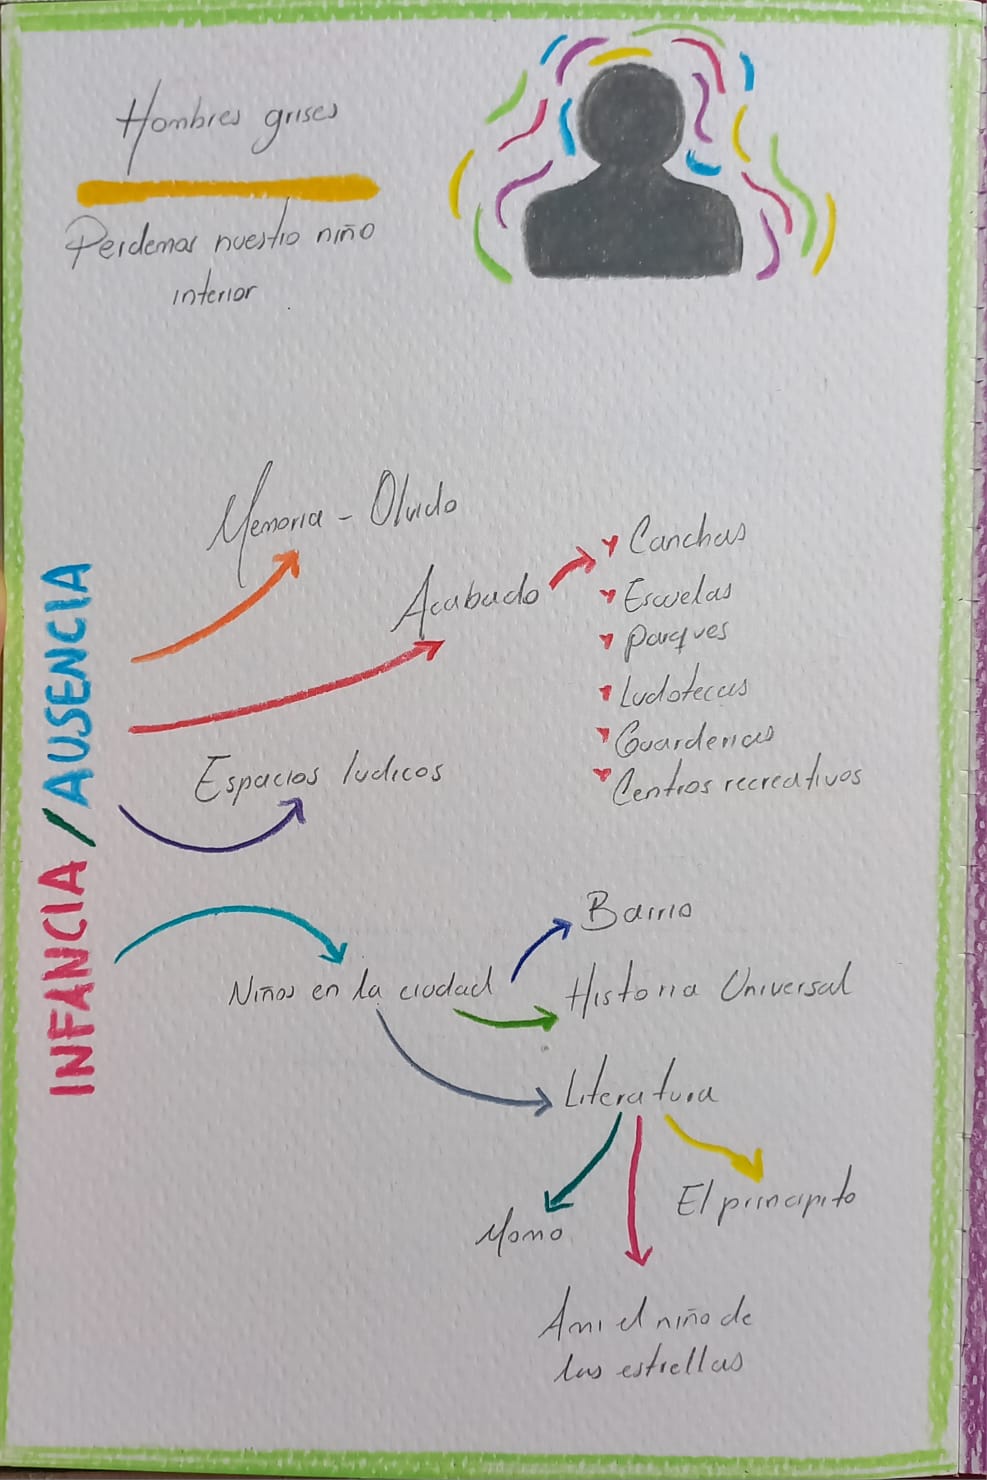 Hombres grises
Perdemos nuestro niño
interior
INFANCIA / AUSENCIA
Memoria - Olvido
Acabado
Canchas
Escuelas
Parques
Ludotecas
Guarderias
Centros recreativos
Espacios ludicos
Niños en la ciudad
Barrio
Historia Universal
Literatura
Momo
El principito
Ami el niño de
las estrellas